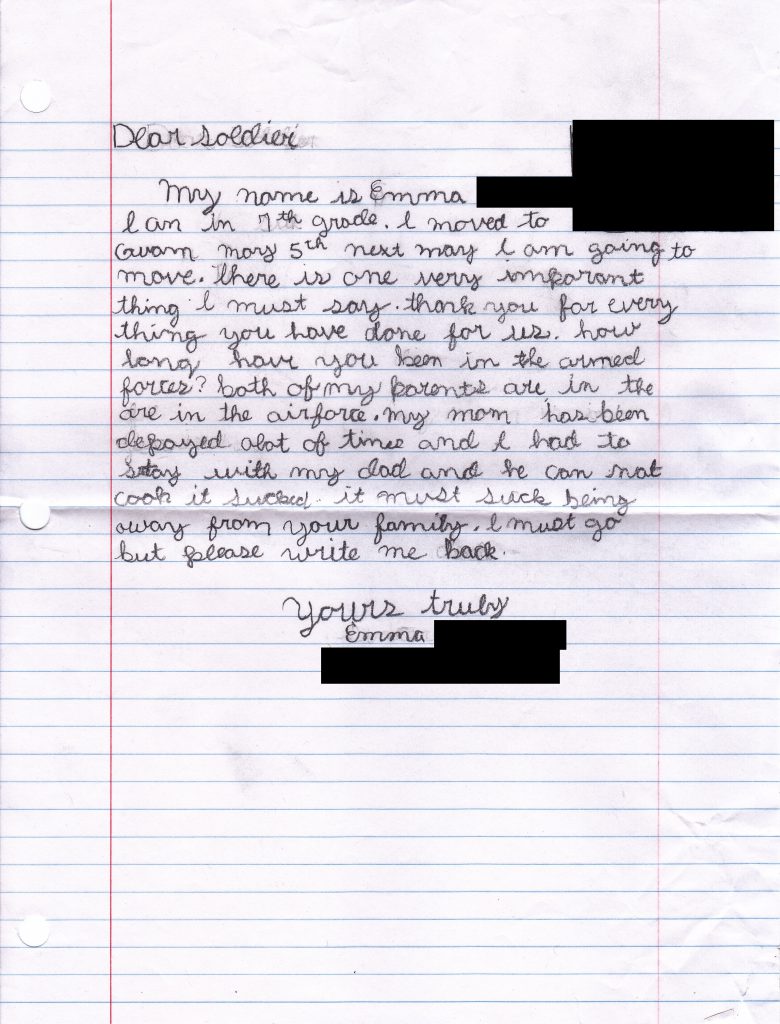 Dear soldier
My name is Emma
I an in 7th grade. I moved to
Guam may 5th next may I am going to
move. there is one very imporant
thing I must say. thank you for every
thing you have done for us. how
long have you been in the armed
forces? both of my parents are in the
are in the airforce. my mom has been
depoyed alot of time and I had to
stay with my dad and he can not
cook it sucked. it must suck being
away from your family. I must go
but please write me back.
Yours truly
Emma